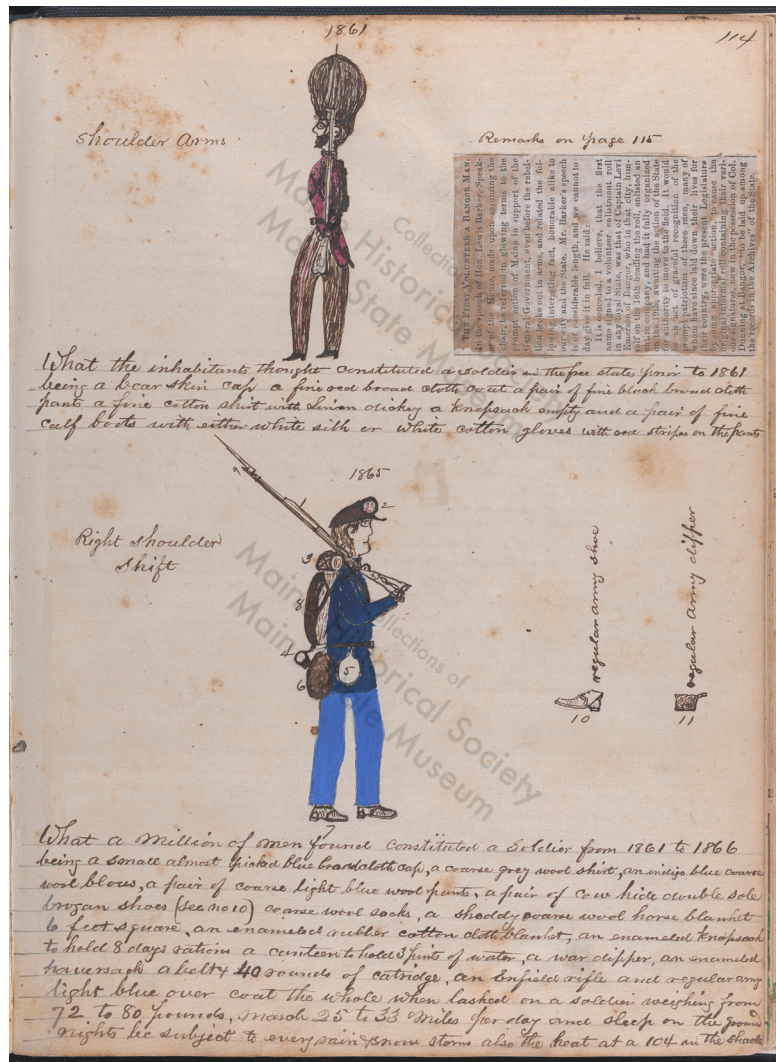 1861
114
Shoulder Arms
Remarks on page 115
THE FIRST VOLUNTEER A BANGOR MAN.
In the speech of Hon. Lewis Barker, Speak-
er of the House, made upon assuming the
chair, he referred in glowing terms to the
prompt action of Maine in support of the
General Government, even before the rebel-
lion broke out in arms, and related the fol-
lowing interesting fact, honorable alike to
our city and the State. Mr. Barker's speech
was of considerable length, and we cannot to-
day give it in full. He said:
It is conceded, I believe, that the first
name signed to a volunteer enlistment roll
in any loyal State, was that of Captain Levi
Emerson of Bangor, who in that city, him-
self on the 18th heading the roll, enlisted an
entire company, and had it fully organized
on the 19th, awaiting the action of the State
for authority to move to the field. It would
be an act of graceful recognition of the
prompt patriotism of these men, many of
whom have since laid down their lives for
their country, were the present Legislature
by some appropriate action, to cause the
original informal roll containing their vari-
ous signatures, now in the possession of Col.
Dunning at Bangor, "to be laid up among
the records in the Archives" of the State.
What the inhabitants thought constituted a soldier in the free states prior to 1861
being a bear skin cap a fine red broad cloth coat a pair of fine black broad cloth
pants a fine cotton shirt with Linen dickey a Knapsack empty and a pair of fine
calf boots with either white silk or white cotton gloves with red stripes on the pants
1865
Right shoulder
shift
9
1
2
3
8
4
5
6
7
regular army shoe
10
regular army dipper
11
What a million of men found constituted a Soldier from 1861 to 1866
being a small almost picked blue broadcloth cap, a coarse grey wool shirt, an indigo blue coarse
wool blous, a pair of coarse light blue wool pants, a pair of cow hide double sole
brogan shoes (see no 10) coarse wool socks, a shoddy coarse wool horse blanket
6 feet square, an enameled rubber cotton cloth blanket, an enameled Knapsack
to hold 8 days rations a canteen to hold 3 pints of water, a war dipper, an enameled
haversack a belt & 40 rounds of catridge, an Enfield rifle and regular army
light blue over coat the whole when lashed on a soldier weighing from
72 to 80 pounds, march 25 to 33 miles per day and sleep on the ground
nights be subject to every rain & snow storms also the heat at a 104 in the shade
Collections of
Maine Historical Society
Maine State Museum
Collections of
Maine Historical Society
Maine State Museum